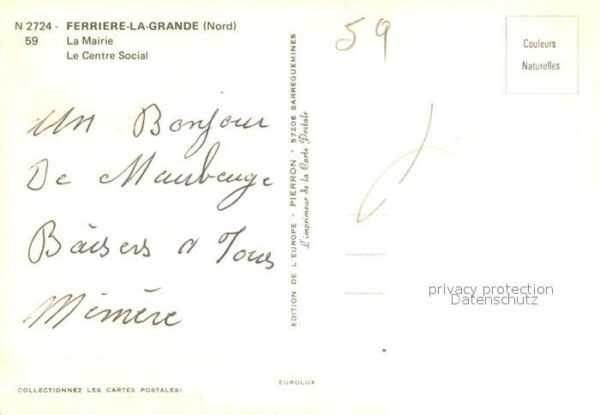 N 2724 - FERRIERE-LA-GRANDE (Nord)
59 La Mairie
Le Centre Social
Un Bonjour
De Maubeuge
Baisers a Tous
Mimère
COLLECTIONNEZ LES CARTES POSTALES!
EDITION DE L'EUROPE • PIERRON • 57206 SARREGUEMINES
L'imprimeur de la Carte Postale
EUROLUX
59
Couleurs
Naturelles
privacy protection
Datenschutz